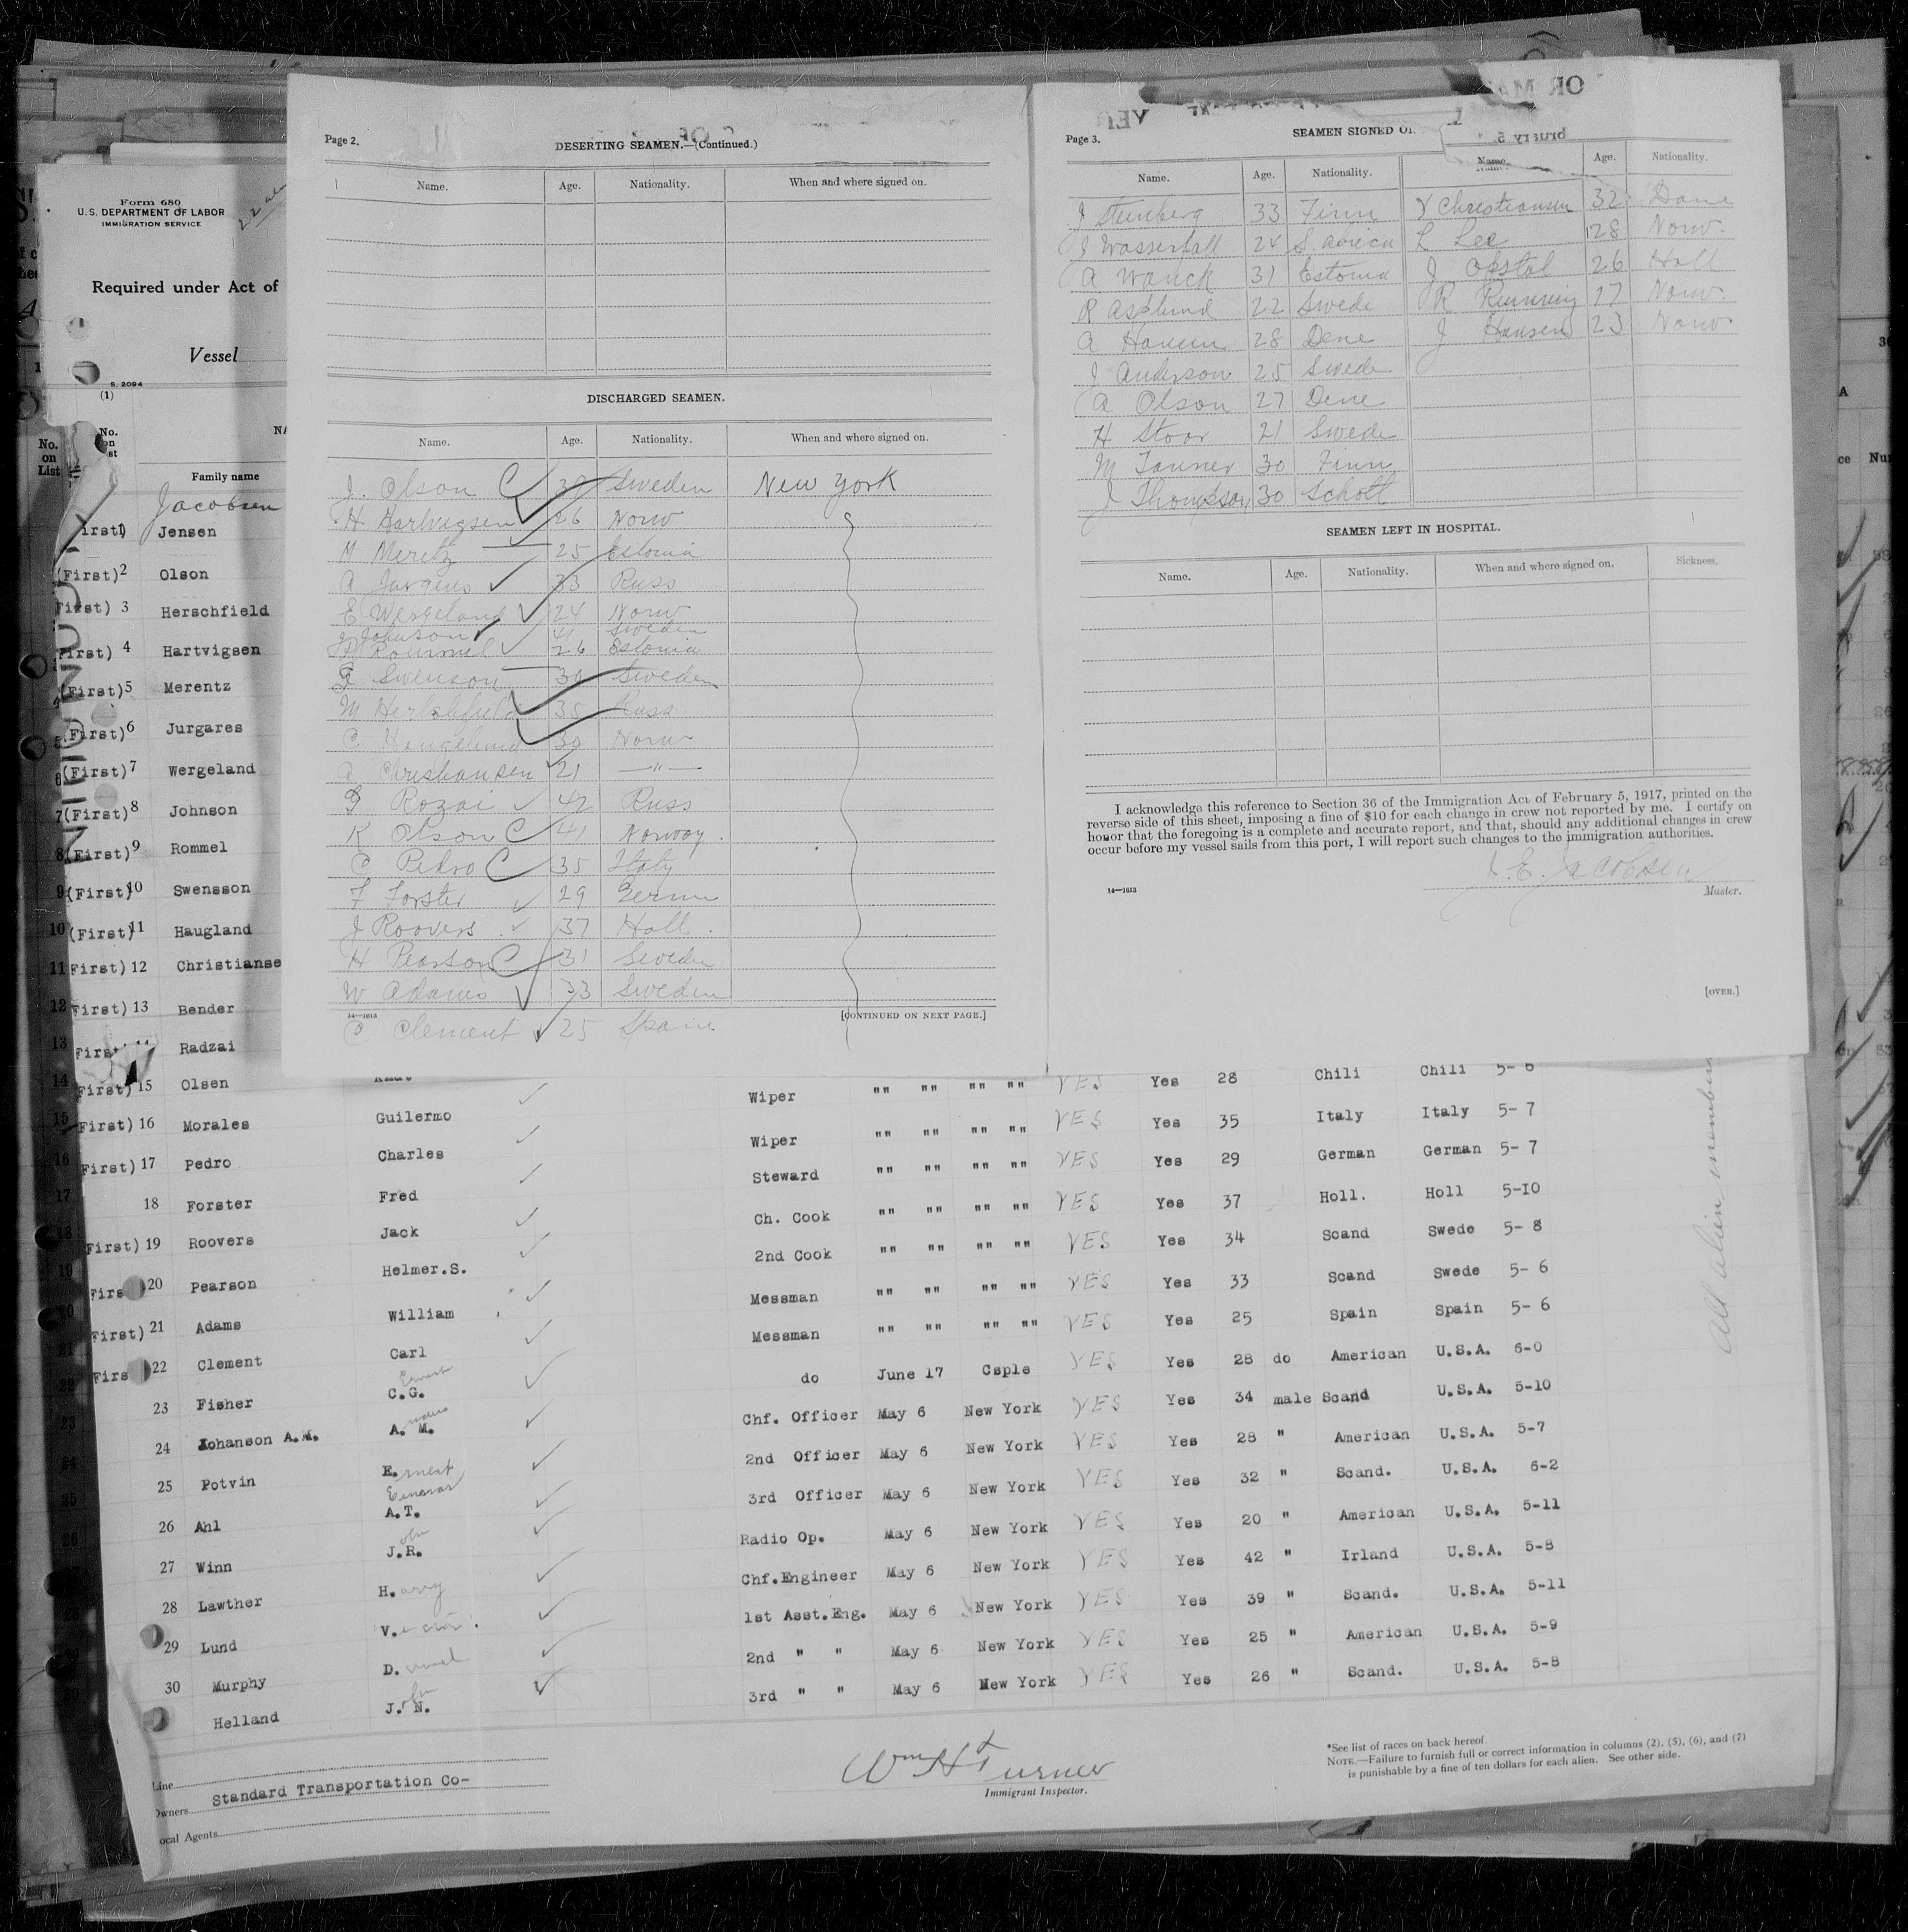 Page 2.
DESERTING SEAMEN.—(Continued.)
Name. Age. Nationality. When and where signed on.
DISCHARGED SEAMEN.
Name. Age. Nationality. When and where signed on.
J. Olson C Sweden New York
H Hartvigsen 26 Norw
M Meritz 25 Estonia
A Jurgens 33 Russ
E Wergeland 24 Norw
J Johnson 41 Sweden
Rommel 26 Estonia
Swenson 30 Sweden
M Hertchfield 35 Russ
C Haugland 30 Norw
A Christiansen 21 —"—
G Rozai 42 Russ
K Olson C 41 Norway.
C Pedro C 35 Italy
F Forster 29 Germ
J Roovers 37 Holl.
H Pearson C 31 Sweden
W Adams 33 Sweden
14—1613 [CONTINUED ON NEXT PAGE.]
C Clement 25 Spain
Page 3.
SEAMEN SIGNED
Name. Age. Nationality. Name. Age. Nationality.
J Steinberg 33 Finn Christiansen 32 Dane
J Wasserfall 24 S. Africa L Lee 28 Norw.
A Wanck 31 Estonia J Opstal 26 Holl
R Asplund 22 Swede R Running 17 Norw.
A Hansen 28 Dene J Hansen 23 Norw
J Anderson 25 Swede
A Olson 27 Dene
H Stoor 21 Swede
M Tanner 30 Finn
J Thompson 30 Schott
SEAMEN LEFT IN HOSPITAL.
Name. Age. Nationality. When and where signed on. Sickness.
I acknowledge this reference to Section 36 of the Immigration Act of February 5, 1917, printed on the
reverse side of this sheet, imposing a fine of $10 for each change in crew not reported by me. I certify on
honor that the foregoing is a complete and accurate report, and that, should any additional changes in crew
occur before my vessel sails from this port, I will report such changes to the immigration authorities.
J. E. Jacobsen
14—1613 Master.
[OVER.]
Form 680
U.S. DEPARTMENT OF LABOR
IMMIGRATION SERVICE
Required under Act of
Vessel
S. 2094
(1)
No. on List
Family name
Jacobsen
1 Jensen
(First) 2 Olson
3 Herschfield
4 Hartvigsen
(First) 5 Merentz
(First) 6 Jurgares
(First) 7 Wergeland
(First) 8 Johnson
(First) 9 Rommel
(First) 10 Swensson
(First) 11 Haugland
First) 12 Christianse
First) 13 Bender
Radzai
First) 15 Olsen Wiper "" "" "" "" YES Yes 28 Chili Chili 5- 6
First) 16 Morales Guilermo Wiper "" "" "" "" YES Yes 35 Italy Italy 5- 7
First) 17 Pedro Charles Steward "" "" "" "" YES Yes 29 German German 5- 7
18 Forster Fred Ch. Cook "" "" "" "" YES Yes 37 Holl. Holl 5-10
First) 19 Roovers Jack 2nd Cook "" "" "" "" YES Yes 34 Scand Swede 5- 8
20 Pearson Helmer.S. Messman "" "" "" "" YES Yes 33 Scand Swede 5- 6
First) 21 Adams William Messman "" "" "" "" YES Yes 25 Spain Spain 5- 6
22 Clement Carl do June 17 Csple YES Yes 28 do American U.S.A. 6-0
23 Fisher C.G. Ernest Chf. Officer May 6 New York YES Yes 34 male Scand U.S.A. 5-10
24 Johanson A.M. A. M. 2nd Officer May 6 New York YES Yes 28 " American U.S.A. 5-7
25 Potvin Ernest 3rd Officer May 6 New York YES Yes 32 " Scand. U.S.A. 6-2
26 Ahl A.T. Radio Op. May 6 New York YES Yes 20 " American U.S.A. 5-11
27 Winn J.R. ohn Chf.Engineer May 6 New York YES Yes 42 " Irland U.S.A. 5-8
28 Lawther Harry 1st Asst.Eng. May 6 New York YES Yes 39 " Scand. U.S.A. 5-11
29 Lund V. 2nd " " May 6 New York YES Yes 25 " American U.S.A. 5-9
30 Murphy D. 3rd " " May 6 New York YES Yes 26 " Scand. U.S.A. 5-8
Helland J. N. ohn
All alien members
Line
Owners Standard Transportation Co-
Local Agents
Wm H Turner
Immigrant Inspector.
*See list of races on back hereof.
NOTE.—Failure to furnish full or correct information in columns (2), (5), (6), and (7)
is punishable by a fine of ten dollars for each alien. See other side.